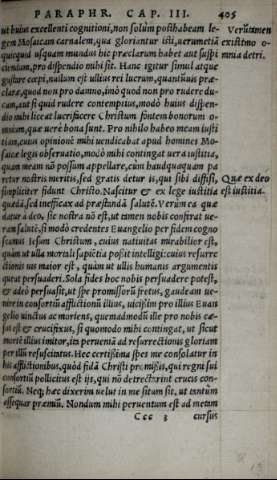 PARAPHR. CAP. III. 405
ut huius excellenti cognitioni, non solùm posthabeam le-
gem Mosaicam carnalem, qua gloriantur isti, uerumetiã
quicquid usquam mundus hic præclarum habet aut suspi
ciendum, pro dispendio mihi sit. Hanc igitur simul atque
gustare cœpi, nullum est ullius rei lucrum, quantũuis præ-
claræ, quod non pro damno, imò quod non pro rudere du-
cam, aut si quid rudere contemptius, modò huius dispen-
dio mihi liceat lucrifacere Christum fontem bonorum o-
mnium, quæ uerè bona sunt. Pro nihilo habeo meam iusti
tiam, cuius opinionẽ mihi uendicabat apud homines Mo-
saicæ legis obseruatio, modò mihi contingat uera iustitia,
quam meam nõ possum appellare, cùm haudquaquam pa
retur nostris meritis, sed gratis detur ijs, qui sibi diffisi,
simpliciter fidunt Christo. Nascitur & ex lege iustitia
quædã, sed inefficax ad præstandã salutẽ. Verùm ea quæ
datur à deo, sic nostra nõ est, ut tamen nobis conferat ue-
ram salutẽ, si modò credentes Euangelio per fidem cogno
scamus Iesum Christum, cuius natiuitas mirabilior est,
quàm ut ulla mortali sapiẽtia possit intelligi: cuius resurre
ctionis uis maior est, quàm ut ullis humanis argumentis
queat persuaderi. Sola fides hoc nobis persuadere potest,
& adeò persuasit, ut spe promissorũ fretus, gaudeam ue-
nire in consortiũ afflictionũ illius, uicissim pro illius Euan
gelio uinctus ac moriens, quemadmodũ ille pro nobis cæ-
sus est & crucifixus, si quomodo mihi contingat, ut sicut
mortẽ illius imitor, ita perueniã ad resurrectionis gloriam
per illũ resuscitatus. Hec certissima spes me consolatur in
his afflictionibus, quòd fidã Christi promissis, qui regni sui
consortiũ pollicitus est ijs, qui nõ detrectarint crucis con-
sortiũ. Neq; hæc dixerim uelut in me situm sit, ut tantùm
assequar præmiũ. Nondum mihi peruentum est ad metam
Ccc 3 cursus
Verũtamen
existimo o-
mnia detri.
Quæ ex deo
est iustitia.